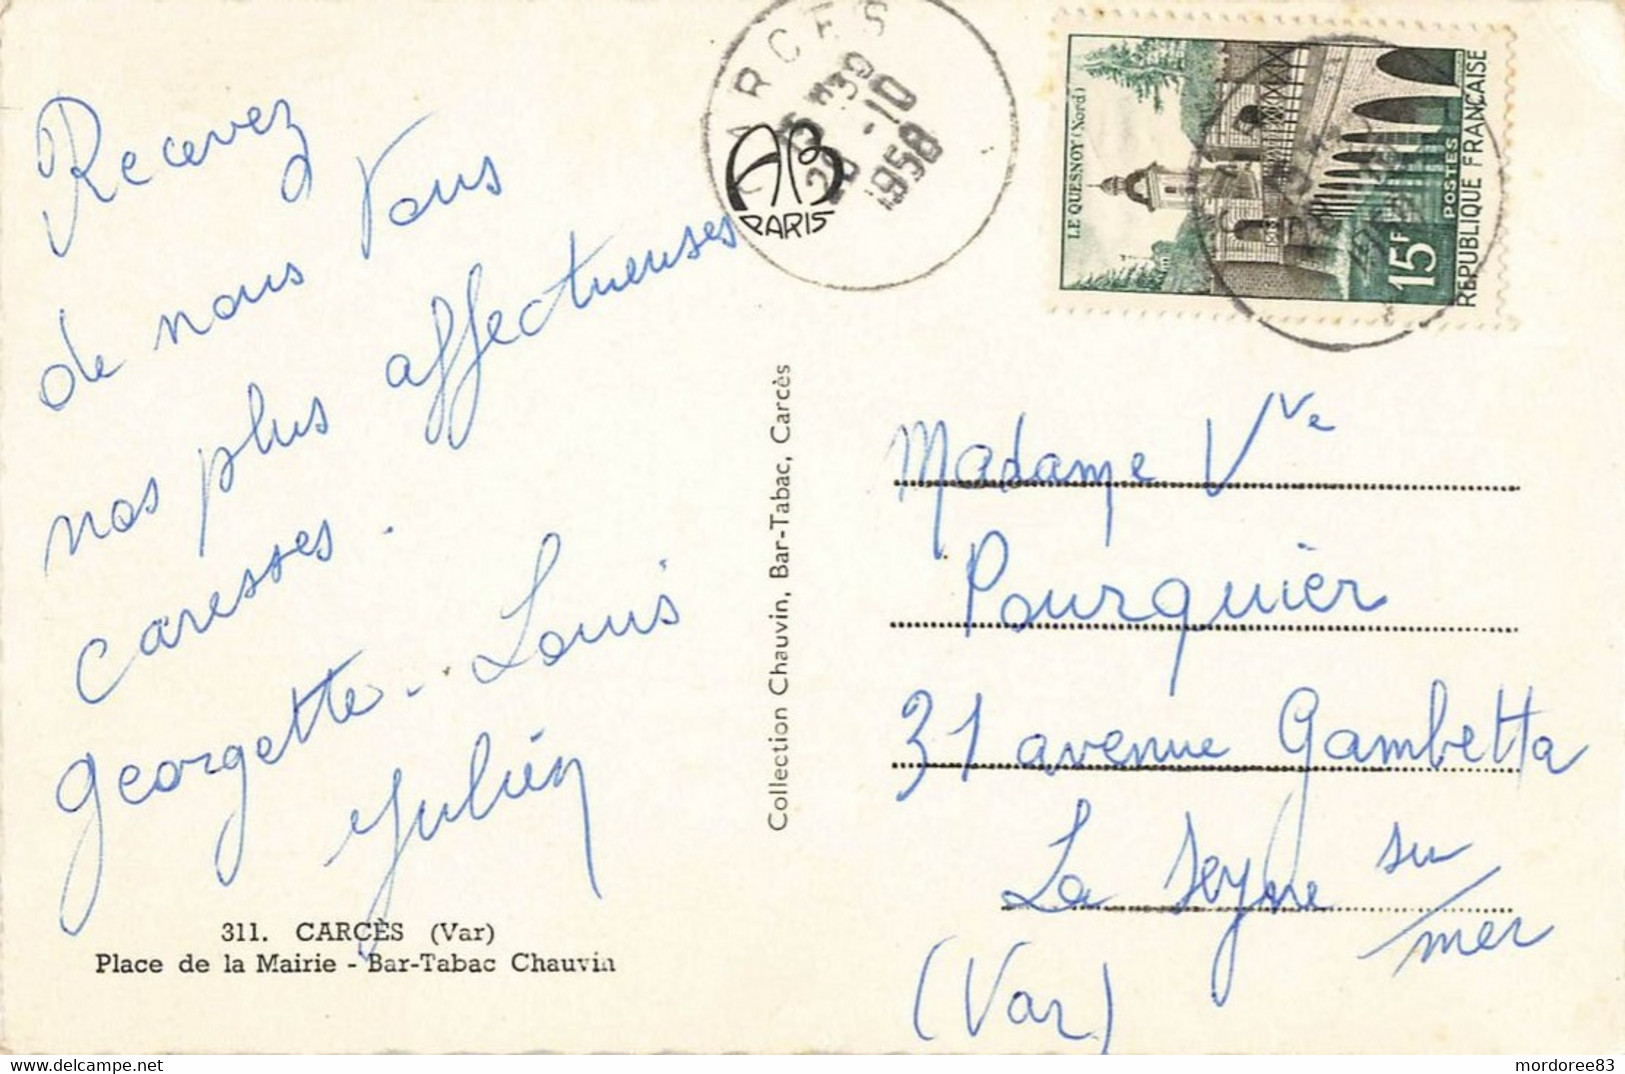 Recevez
de nous Tous
nos plus affectueuses
caresses.
Georgette - Louis
Julien
311. CARCÈS (Var)
Place de la Mairie - Bar-Tabac Chauvin
Collection Chauvin, Bar-Tabac, Carcès
CARCES
28 -10
1958
AB
PARIS
LE QUESNOY (Nord)
15F
POSTES
REPUBLIQUE FRANÇAISE
Madame Vve
Pourquier
31 avenue Gambetta
La Seyne su
/mer
(Var)
mordoree83